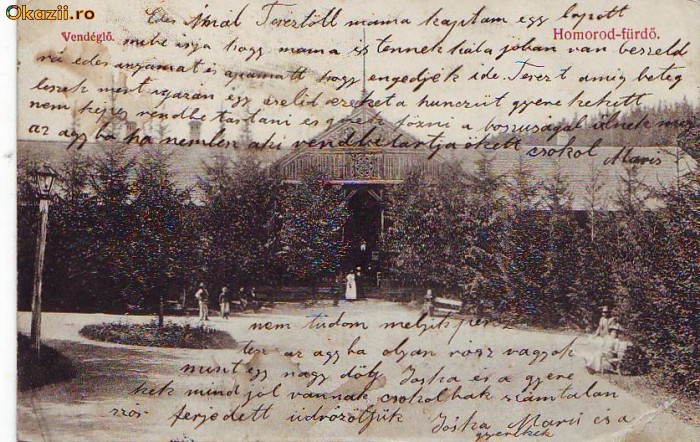 Okazii.ro
Vendéglő.
Homorod-fürdő.
Édes Anal Tereztöll mama kaptam egy lapott
melbe irja hogy mama is tennek hála jóban van beszeld
rá edes anyámat is apamatt hogy engedjek ide Terezt amig beteg
leszek mert igazán egy cseléd ezeket a hunczut gyerekekett
nem képes rendbe tartani és főzni a boszuságal ülnek
az agyba ha nemlen aki rendbe tartja őkett csokol Maris
nem tudom melyik perc
az agyba olyan rosz vagyok
mint egy nagy Joska és a gyere
kek mind jól vannak csokolnak számtalan
szor ferjedett üdvözöljük Joska Maris és a
gyerekek